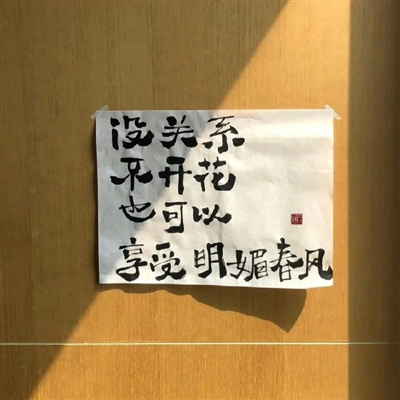 没关系
不开花
也可以
享受明媚春风